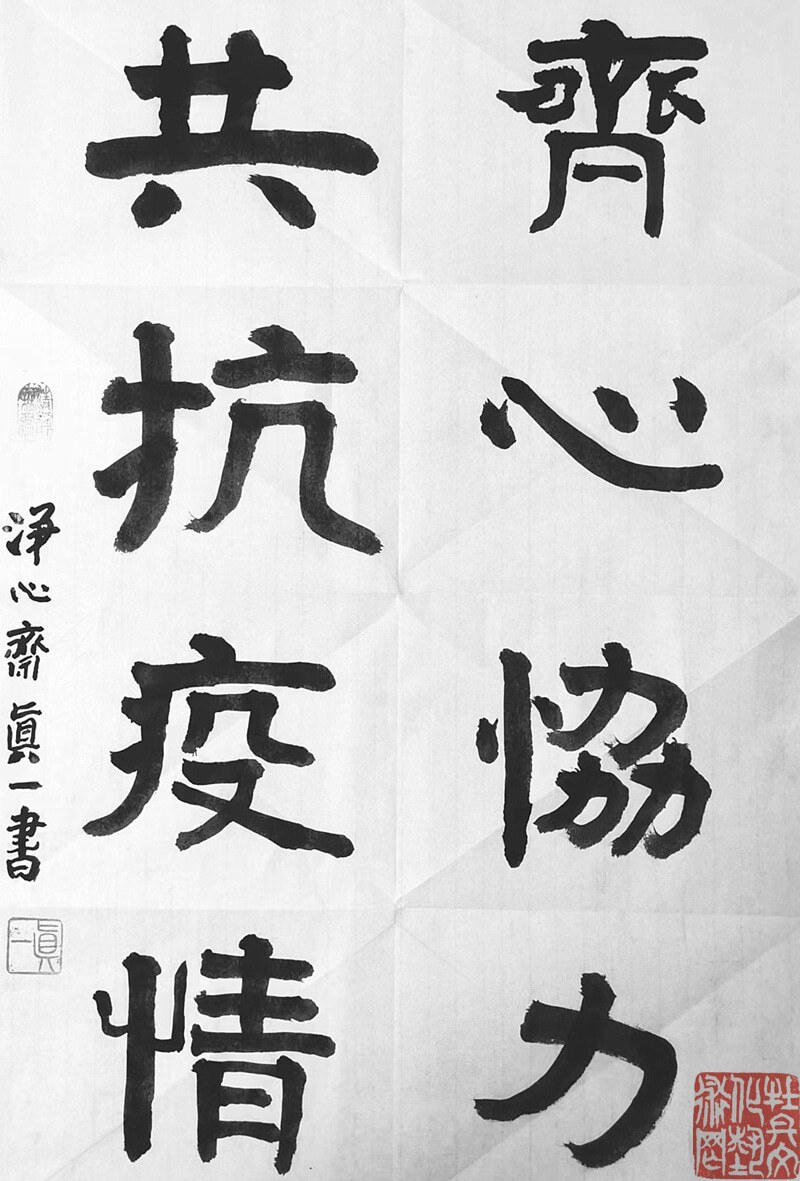 齊心恊力
共抗疫情
淨心齋眞一書
眞一